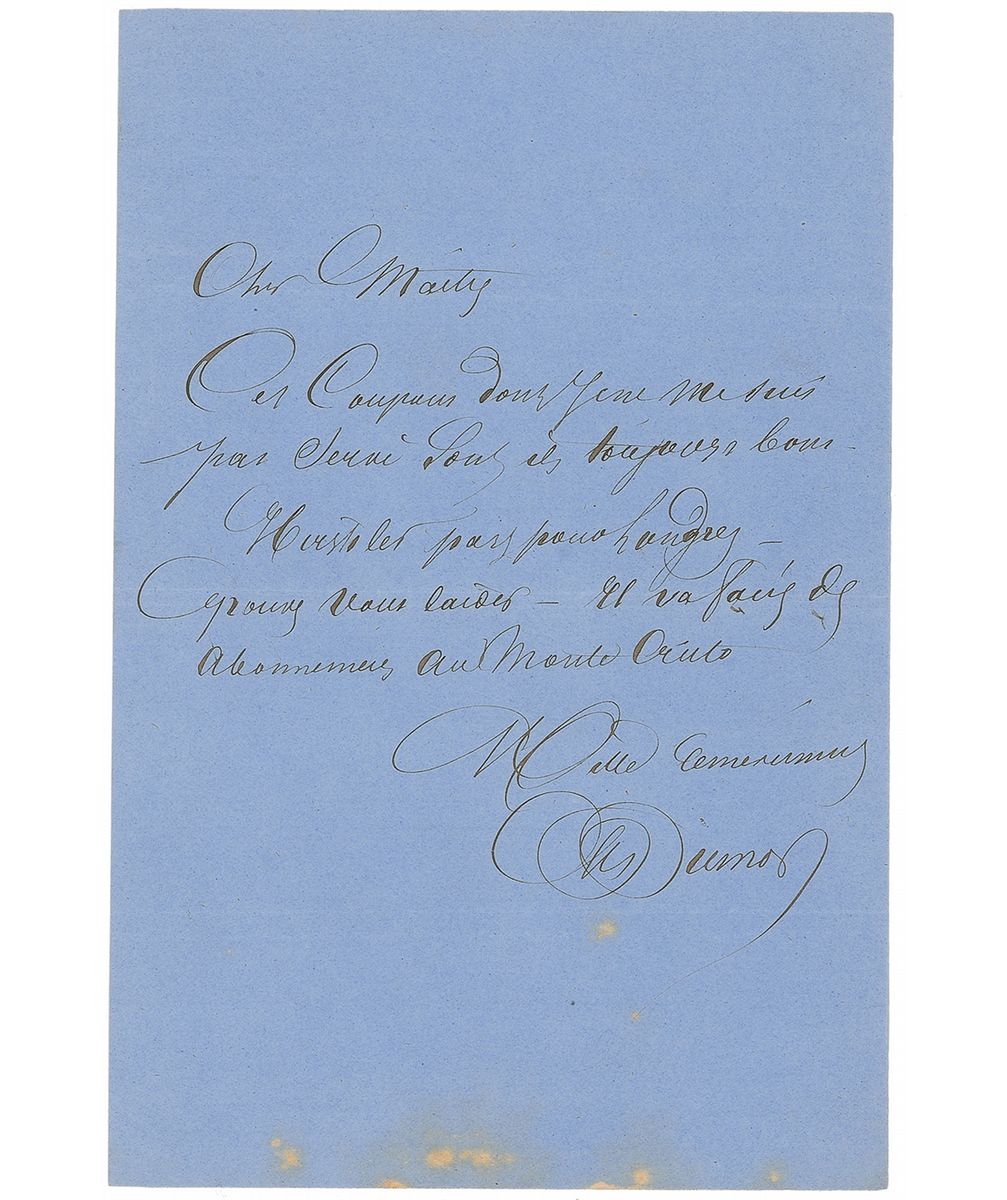 Cher Maitre
Ces Coupons dont je ne me suis
pas Servi Sont ils toujours bons –
part pour Londres –
vous l'aider – Il va faire des
Abonnements au Monte Cristo
Mille
Alex Dumas